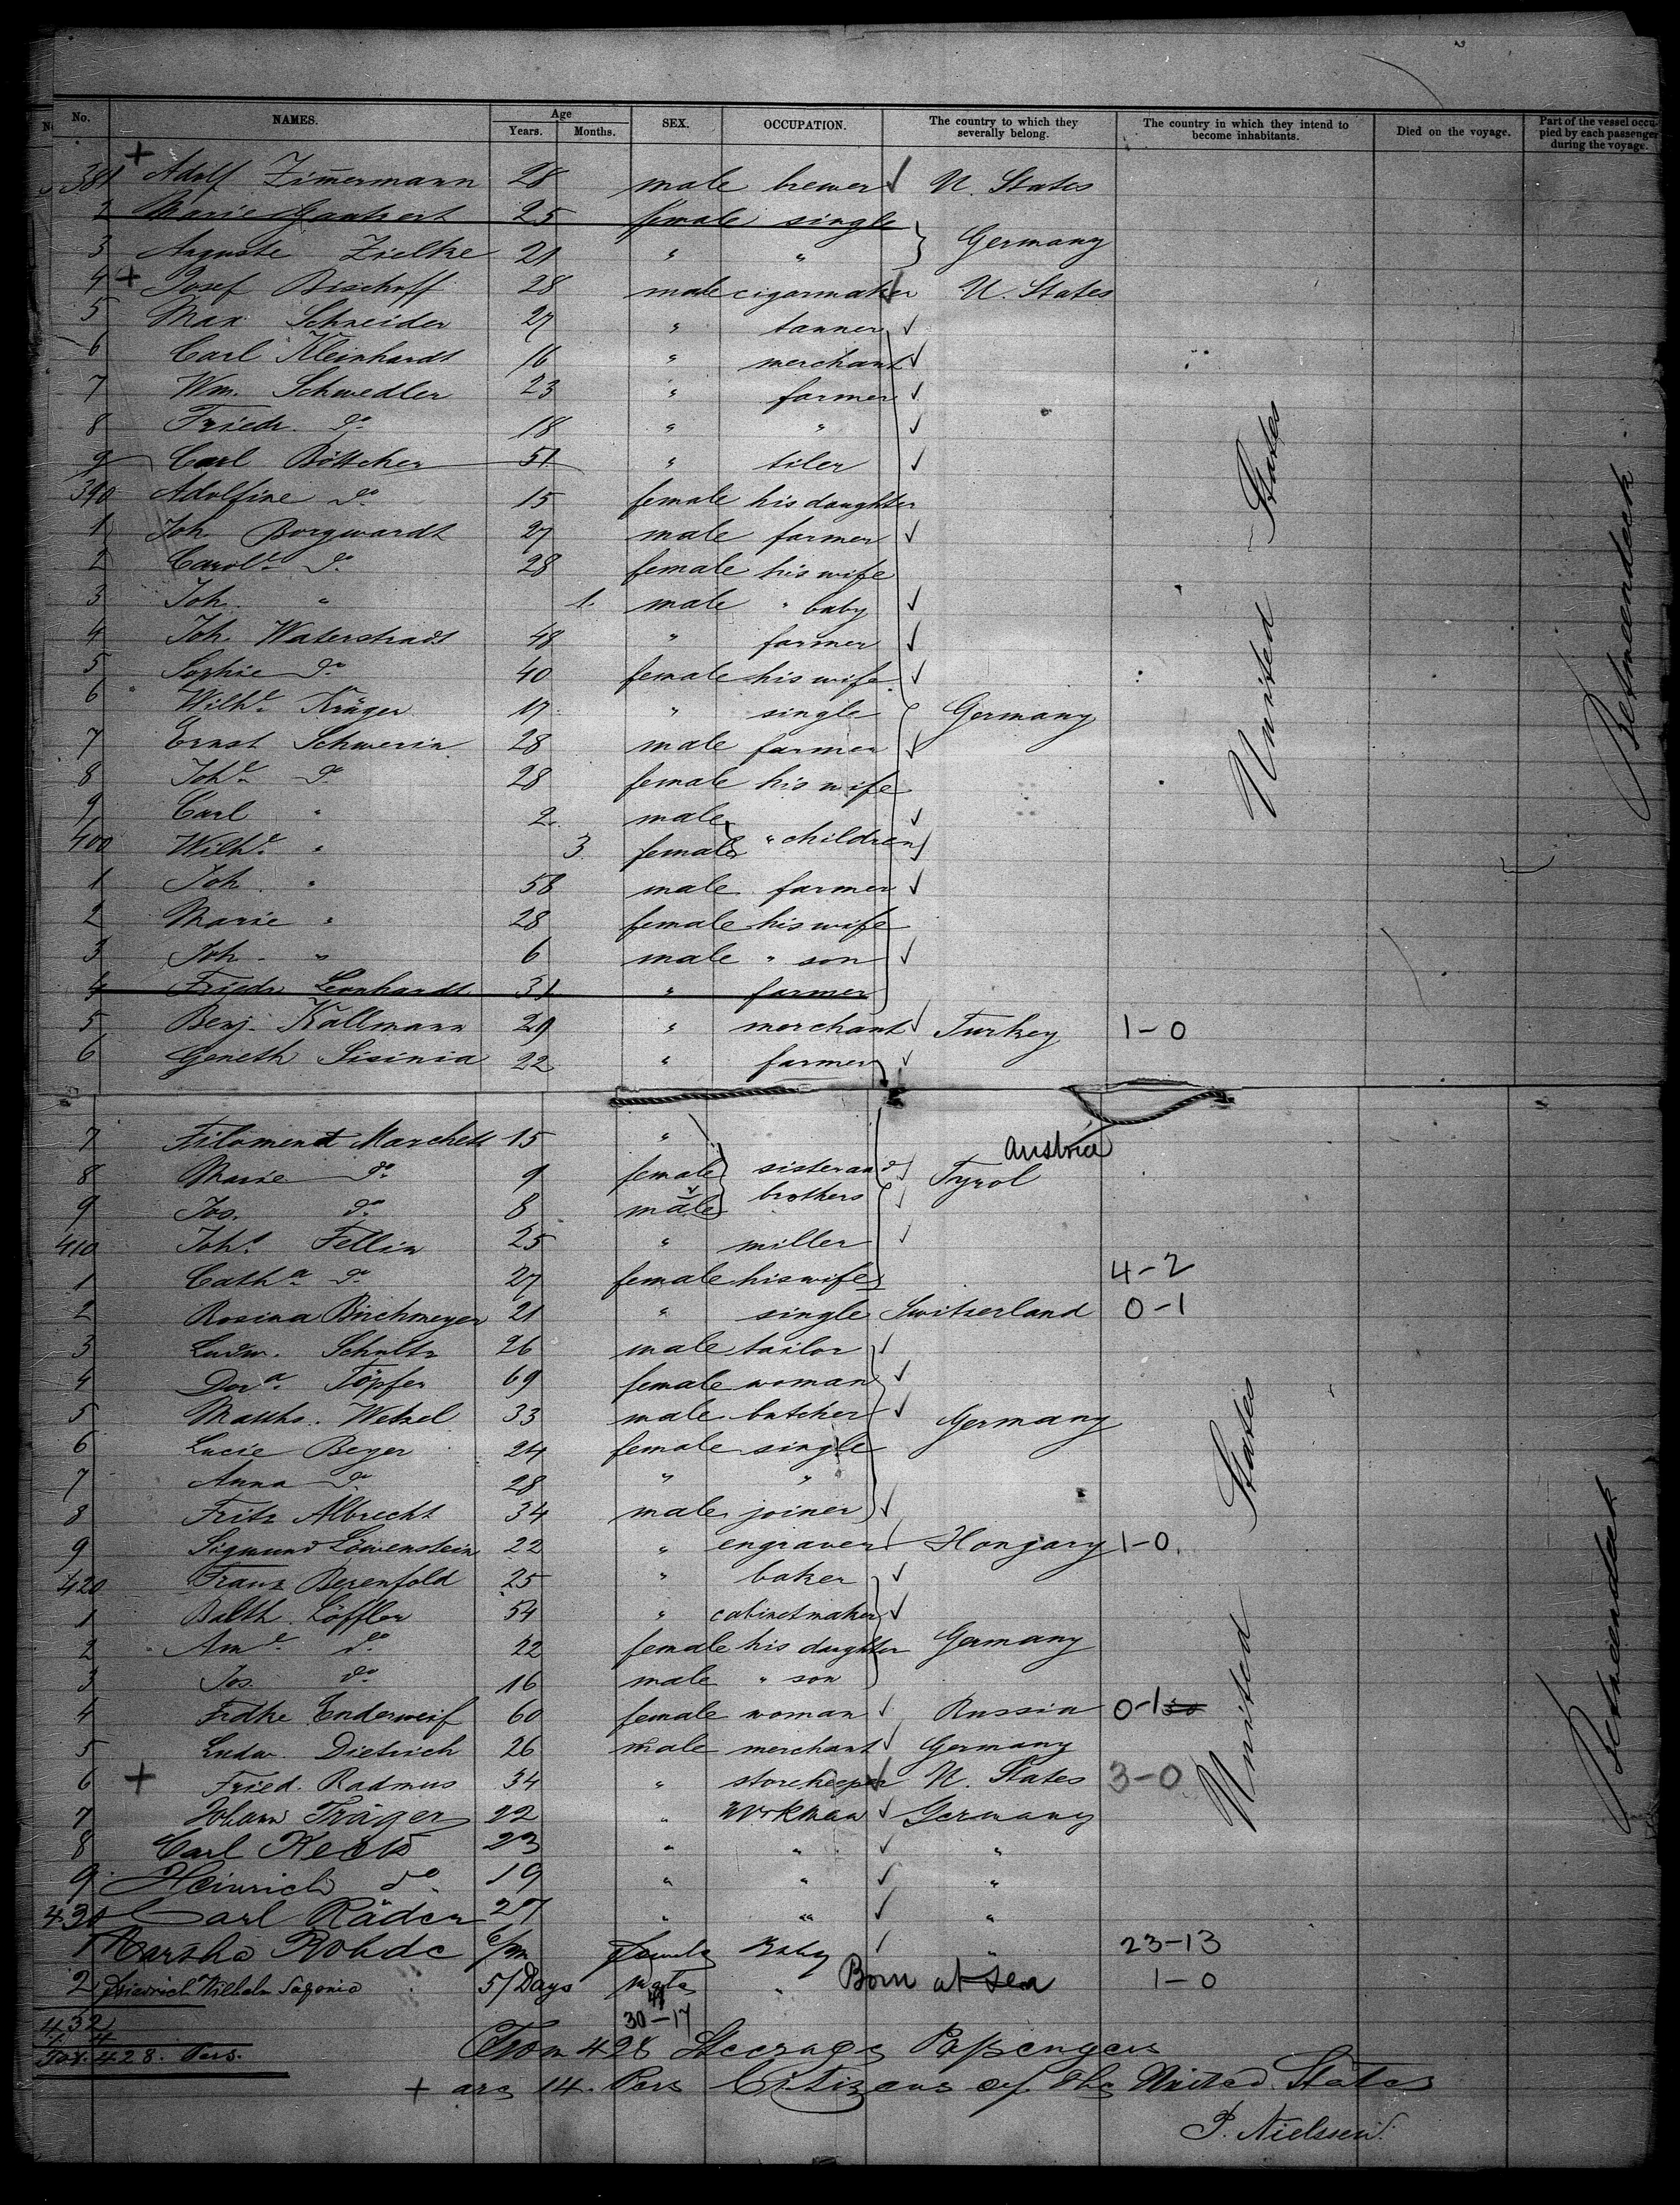 No. NAMES. Age Years. Months. SEX. OCCUPATION. The country to which they severally belong. The country in which they intend to become inhabitants. Died on the voyage. Part of the vessel occupied by each passenger during the voyage.
381 + Adolf Zimermann 28 male brewer ✓ U. States
2 Marie 25 female single
3 Auguste Zielke 21 " " } Germany
4 + Josef Bischoff 28 male cigarmaker ✓ U. States
5 Max Schneider 27 " tanner ✓
6 Carl Kleinhardt 16 " merchant ✓
7 Wm. Schwedler 23 " farmer ✓
8 Friedr. do 18 " " ✓
9 Carl Böttcher 51 " tiler ✓
390 Adolfine do 15 female his daughter
1 Joh. Borgwardt 27 male farmer ✓
2 Carole do 28 female his wife
3 Joh. " 1. male " baby ✓
4 Joh. Waterstradt 48 " farmer ✓
5 Sophie do 40 female his wife ✓
6 Wilhe Kräger 17 " single Germany
7 Ernst Schwerin 28 male farmer ✓
8 Johe do 28 female his wife
9 Carl " 2. male ✓
400 Wilhe " 3 female " children
1 Joh. " 58 male farmer ✓
2 Marie " 28 female his wife
3 Joh. " 6 male " son ✓
4 Friedr. Leonhardt 31 " farmer
5 Benj. Kallmann 29 " merchant ✓ Turkey 1-0
6 Geneth Sisinia 22 " farmer ✓
United States
7 Marchett 15 "
Austria
8 Marie do 9 female sister and Tyrol
9 Jos. do 8 male brothers ✓
410 Joh. Fellin 25 " miller ✓
1 Catha do 27 female his wife 4-2
2 Rosina Birchmeyer 21 " single Switzerland 0-1
3 Ludw. Schultz 26 male tailor ✓
4 Dora Töpfer 69 female woman ✓
5 Matths. Wetzel 33 male butcher ✓ Germany
6 Lucie Beyer 24 female single
7 Anna do 28 " "
8 Fritz Albrecht 34 male joiner ✓
9 Sigmund Löwenstein 22 " engraver Hongary 1-0.
420 Franz Berenfold 25 " baker ✓
1 Balth. Löffler 54 " cabinetmaker ✓
2 Ame do 22 female his daughter Germany
3 Jos. do 16 male " son
4 Fridke Enderweif 60 female woman ✓ Russia 0-1
5 Ludw. Dietrich 26 male merchant ✓ Germany
6 + Fried. Radmus 34 " storekeeper ✓ U. States 3-0
7 Johann Träger 22 " Workman ✓ Germany
8 Carl 23 " " ✓ "
9 Heinrich do 19 " " ✓ "
430 Carl Räder 27 " " ✓ "
1 Martha Rohde 6/m Baby ✓ " 23-13
2 Friedrich Wilhelm 5/Days Male " Born at sea 1-0
United States
432
4
30-17
428. Pers.
From 428 Steerage Passengers
+ are 14. Pers Citizens of the United States
P. Nielssen.